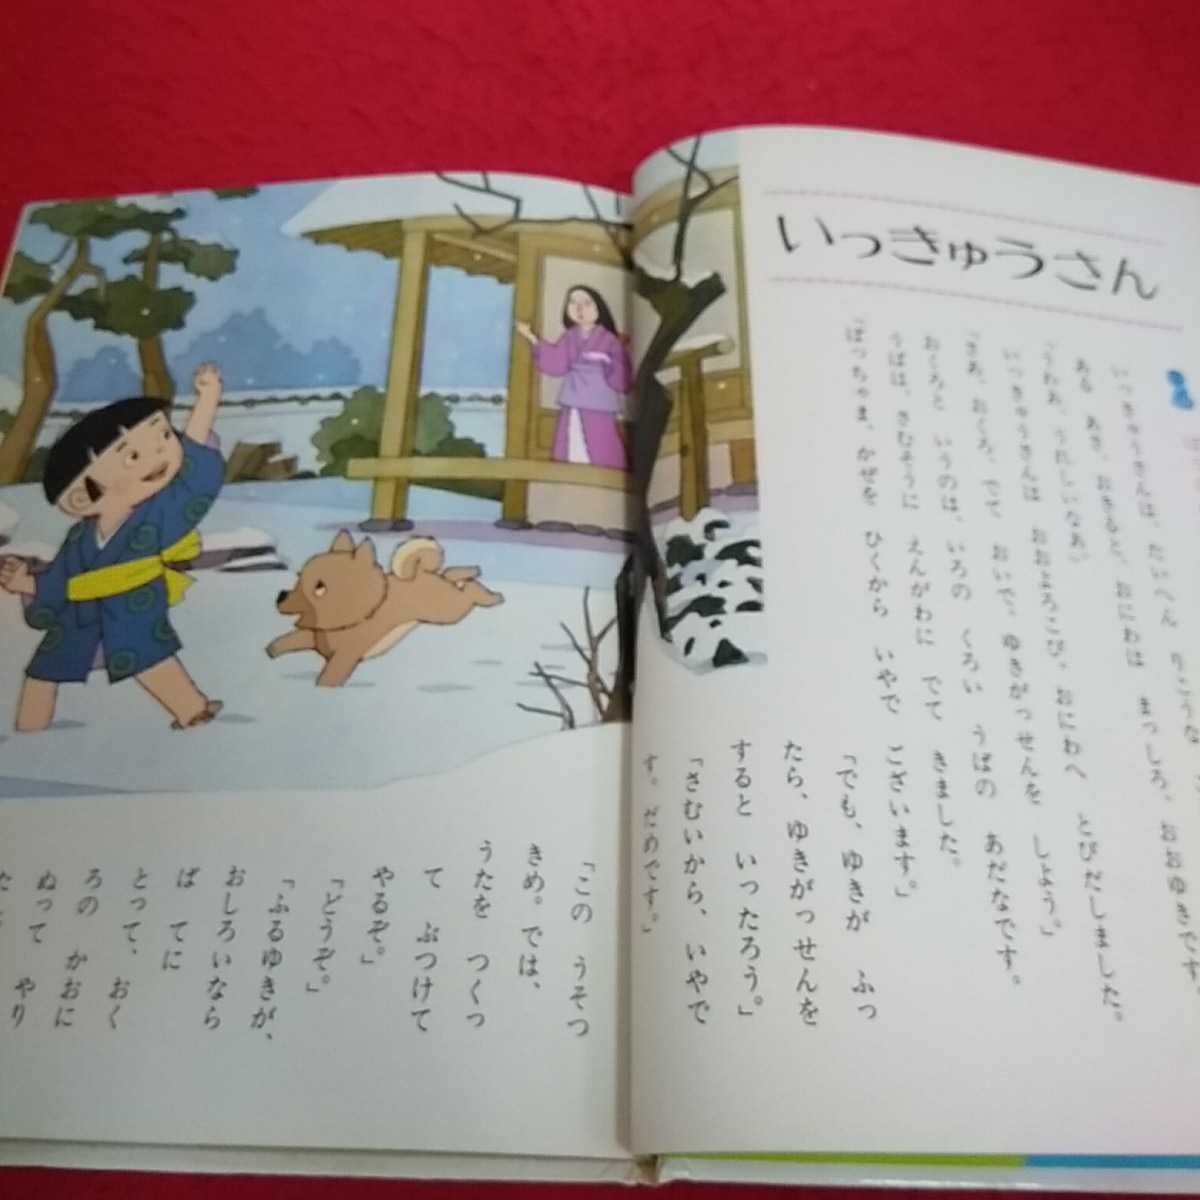 いっきゅうさん
いっきゅうさんは、たいへん りこうな
ある あさ、おきると、おにわは まっしろ。おおゆきです。
「うわあ、うれしいなあ。」
いっきゅうさんは おおよろこび。おにわへ とびだしました。
「さあ、おくろ、でて おいで。ゆきがっせんを しよう。」
おくろと いうのは、いろの くろい うばの あだなです。
うばは、さむそうに えんがわに でて きました。
「ぼっちゃま、かぜを ひくから いやで ございます。」
「でも、ゆきが ふっ
たら、ゆきがっせんを
すると いったろう。」
「さむいから、いやで
す。だめです。」
「この うそつ
きめ。では、
うたを つくっ
て ぶつけて
やるぞ。」
「どうぞ。」
「ふるゆきが、
おしろいなら
ば てに
とって、おく
ろの かおに
ぬって やり